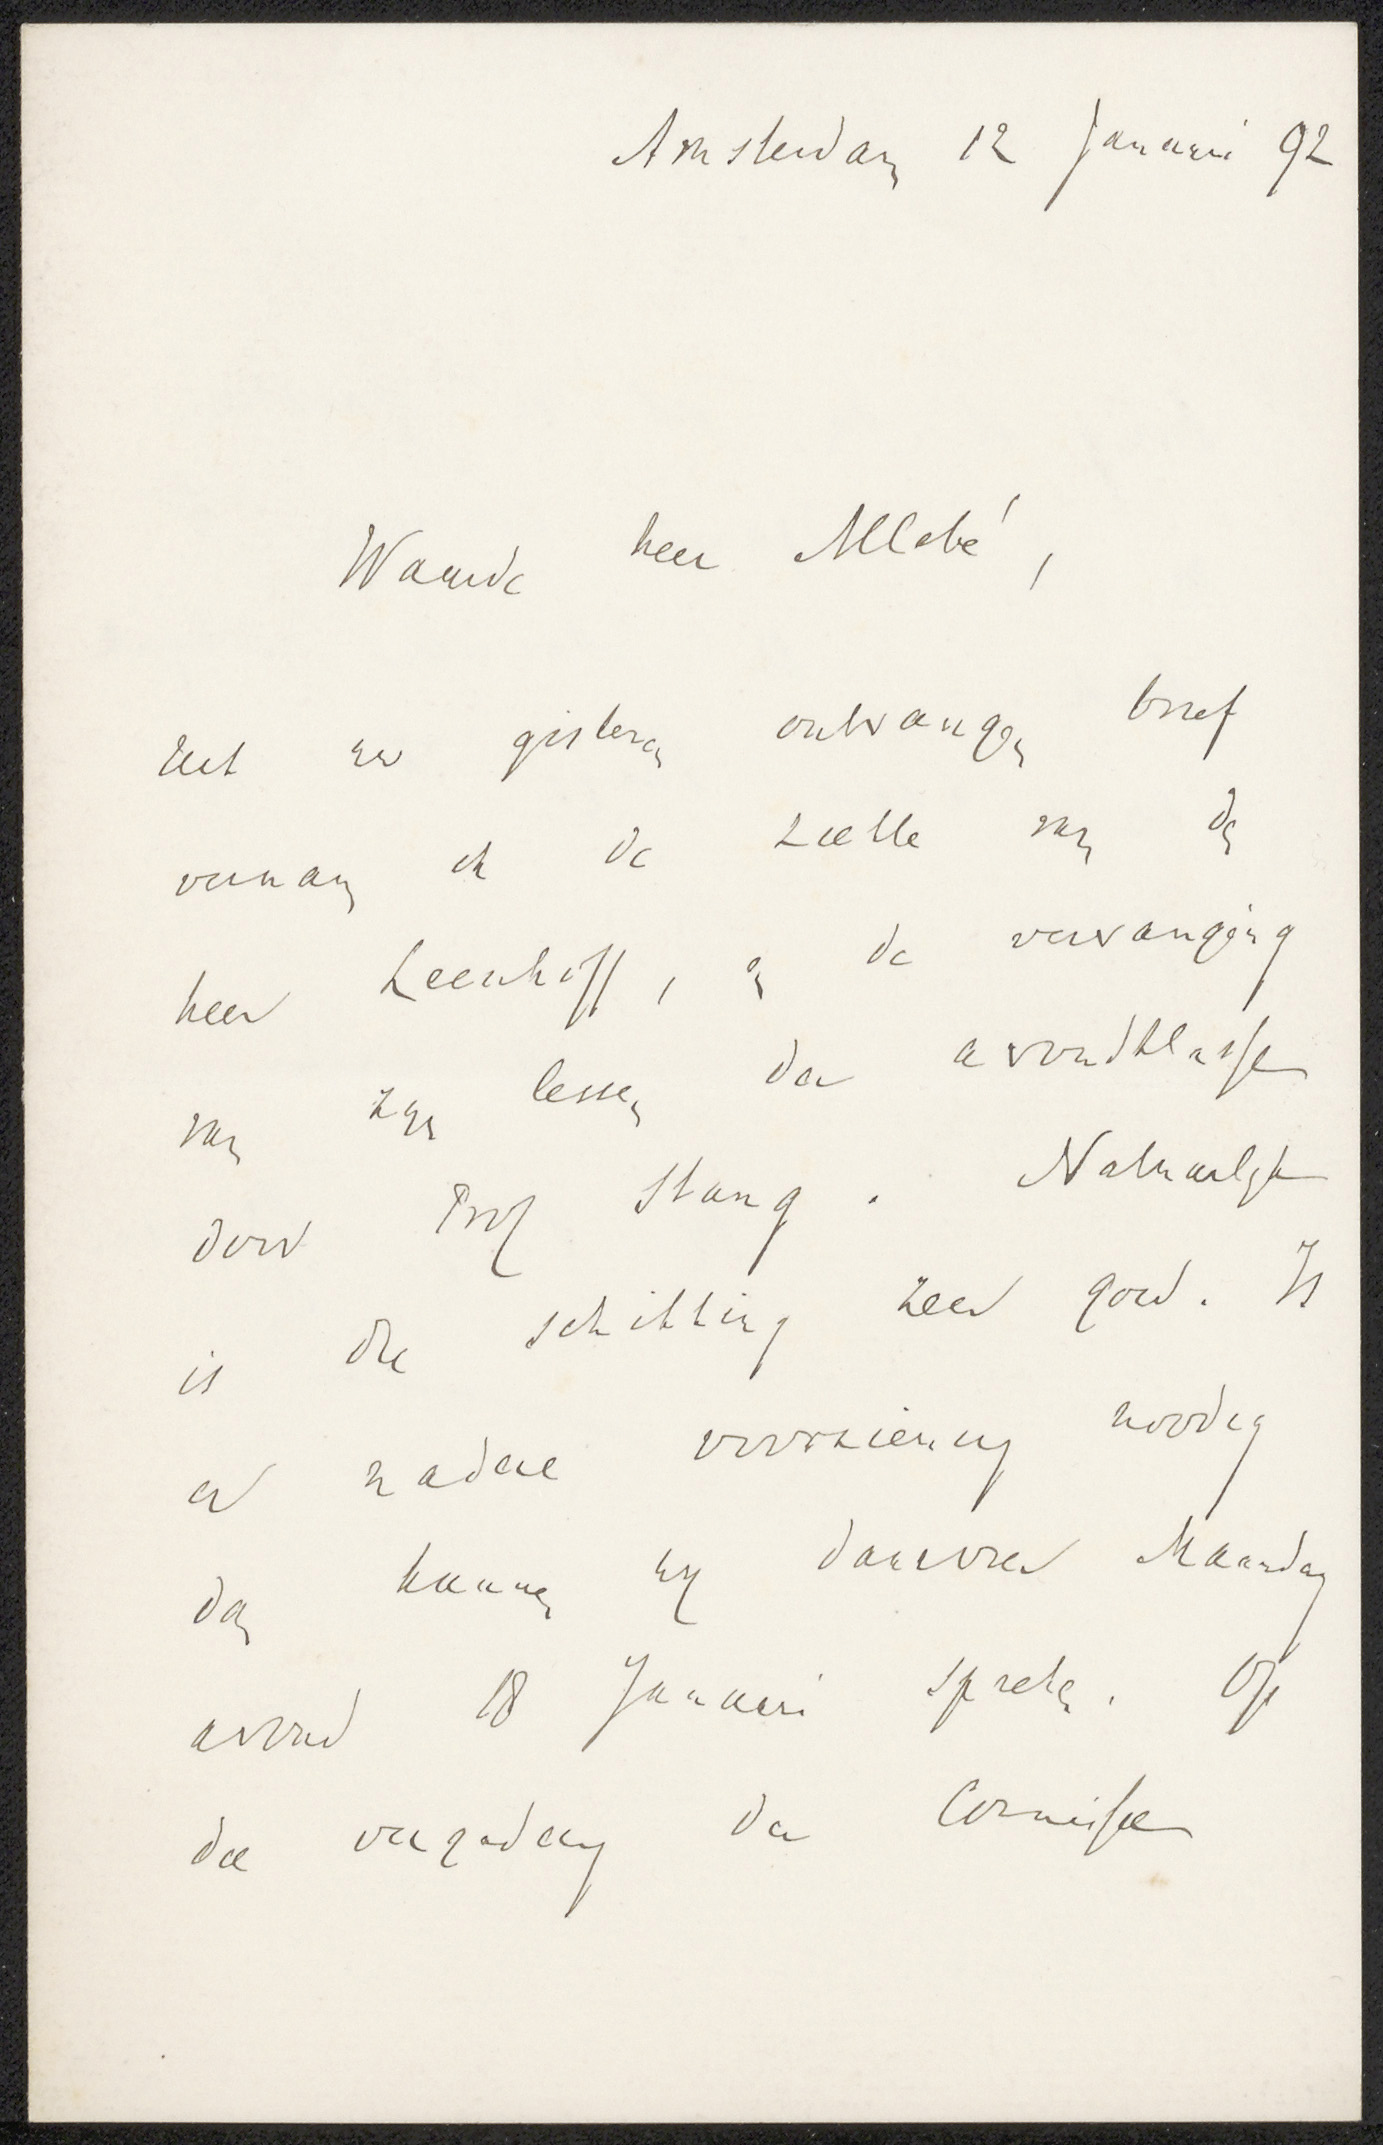 Amsterdam 12 Januari 92
Waarde heer Allebé,
Uit uw gisteren ontvangen brief
vernam ik de ziekte van den
heer Leenhoff, en de vervanging
van zijn lessen der avondklasse
door Prof Stang. Natuurlijk
is die schikking zeer goed. Is
er nadere voorziening noodig
dan kunnen wij daarover Maandag
avond 18 Januari spreken. Op
die vergadering der Commissie